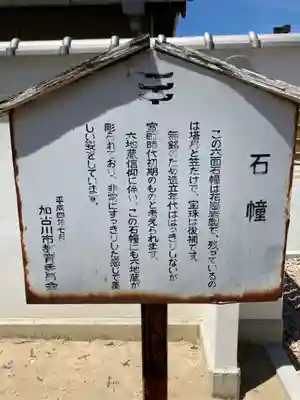 石幢
この六面石幢は花崗岩製で、残っているの
は塔身と笠だけで、宝珠は後補です。
無銘のため造立年代ははっきりしないが
室町時代初期のものと考えられます。
六地蔵信仰に伴い、この石幢にも六地蔵が
彫られており、非常にすっきりした感じで美
しい姿をしています。
平成四年七月
加古川市教育委員会